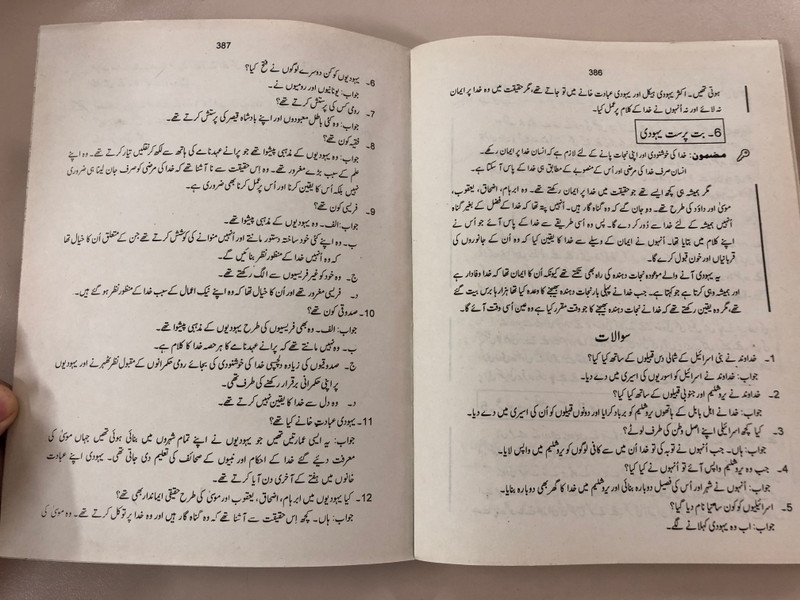 386
ہوتی تھیں۔ اکثر یہودی ہیکل اور یہودی عبادت خانے میں تو جاتے تھے، مگر حقیقت میں وہ خدا پر ایمان
نہ لائے اور نہ اُنہوں نے خدا کے کلام پر عمل کیا۔
6۔ بت پرست یہودی
مضمون: خدا کی خوشنودی اور اپنی نجات پانے کے لئے لازم ہے کہ انسان خدا پر ایمان رکھے۔
انسان صرف خدا کی مرضی اور اُس کے منصوبے کے مطابق ہی خدا کے پاس آ سکتا ہے۔
مگر ہمیشہ ہی کچھ ایسے تھے جو حقیقت میں خدا پر ایمان رکھتے تھے۔ وہ ابرہام، اضحاق، یعقوب،
موسیٰ اور داؤد کی طرح تھے۔ وہ جان گئے کہ وہ گناہ گار ہیں۔ اُنہیں پتہ تھا کہ خدا کے فضل کے بغیر گناہ
اُنہیں ہمیشہ کے لئے خدا سے دُور کر دے گا۔ پس وہ اُسی طریقے سے خدا کے پاس آئے جو اُس نے
اپنے کلام میں بتایا تھا۔ اُنہوں نے ایمان کے وسیلے سے خدا کا یقین کیا کہ وہ اُن کے جانوروں کی
قربانیاں اور خون قبول کرے گا۔
یہ یہودی آنے والے موعودہ نجات دہندہ کی راہ بھی تکتے تھے کیونکہ اُن کا ایمان تھا کہ خدا وفادار ہے
اور ہمیشہ وہی کرتا ہے جو کہتا ہے۔ جب خدا نے پہلی بار نجات دہندہ بھیجنے کا وعدہ کیا تھا ہزارہا برس بیت گئے
تھے، مگر وہ یقین رکھتے تھے کہ خدا نے نجات دہندہ بھیجنے کا جو وقت مقرر کیا ہے وہ عین اُسی وقت آئے گا۔
سوالات
1۔ خداوند نے بنی اسرائیل کے شمالی دس قبیلوں کے ساتھ کیا کیا؟
جواب: خداوند نے اسرائیل کو اسوریوں کی اسیری میں دے دیا۔
2۔ خداوند نے یروشلیم اور جنوبی قبیلوں کے ساتھ کیا کیا؟
جواب: خدا نے اہل بابل کے ہاتھوں یروشلیم کو برباد کرایا اور دونوں قبیلوں کو اُن کی اسیری میں دے دیا۔
3۔ کیا کچھ اسرائیلی اپنے اصل وطن کی طرف لوٹے؟
جواب: ہاں۔ جب اُنہوں نے توبہ کی تو خدا اُن میں سے کافی لوگوں کو یروشلیم میں واپس لایا۔
4۔ جب وہ یروشلیم واپس آئے تو اُنہوں نے کیا کیا؟
جواب: اُنہوں نے شہر اور اُس کی فصیل دوبارہ بنائی اور یروشلیم میں خدا کا گھر بھی دوبارہ بنایا۔
5۔ اسرائیلیوں کو کون سا نیا نام دیا گیا؟
جواب: اب وہ یہودی کہلانے لگے۔
387
6۔ یہودیوں کو کن دوسرے لوگوں نے فتح کیا؟
جواب: یونانیوں اور رومیوں نے۔
7۔ رومی کس کی پرستش کرتے تھے؟
جواب: وہ کئی باطل معبودوں اور اپنے بادشاہ قیصر کی پرستش کرتے تھے۔
8۔ فقیہ کون تھے؟
جواب: وہ یہودیوں کے مذہبی پیشوا تھے جو پرانے عہدنامے کی ہاتھ سے لکھ کر نقلیں تیار کرتے تھے۔ وہ اپنے
علم کے سبب بڑے مغرور تھے۔ وہ اِس حقیقت سے نا آشنا تھے کہ خدا کی مرضی کو صرف جان لینا ہی ضروری
نہیں بلکہ اُس کا یقین کرنا اور اُس پر عمل کرنا بھی ضروری ہے۔
9۔ فریسی کون تھے؟
جواب: الف۔ وہ یہودیوں کے مذہبی پیشوا تھے۔
ب۔ وہ اپنے کئی خود ساختہ دستور مانتے اور اُنہیں منوانے کی کوشش کرتے تھے جن کے متعلق اُن کا خیال تھا
کہ وہ اُنہیں خدا کے منظورِ نظر بنائیں گے۔
ج۔ وہ خود کو غیر فریسیوں سے الگ رکھتے تھے۔
د۔ فریسی مغرور تھے اور اُن کا خیال تھا کہ وہ اپنے نیک اعمال کے سبب خدا کے منظورِ نظر ہو گئے ہیں۔
10۔ صدوقی کون تھے؟
جواب: الف۔ وہ بھی فریسیوں کی طرح یہودیوں کے مذہبی پیشوا تھے۔
ب۔ وہ نہیں مانتے تھے کہ پرانے عہدنامے کا ہر حصہ خدا کا کلام ہے۔
ج۔ صدوقیوں کی زیادہ دلچسپی خدا کی خوشنودی کی بجائے رومی حکمرانوں کے مقبولِ نظر ٹھہرنے اور یہودیوں
پر اپنی حکمرانی برقرار رکھنے کی طرف تھی۔
د۔ وہ دل سے خدا کا یقین نہیں کرتے تھے۔
11۔ یہودی عبادت خانے کیا تھے؟
جواب: یہ ایسی عمارتیں تھیں جو یہودیوں نے اپنے تمام شہروں میں بنائی ہوئی تھیں جہاں موسیٰ کی
معرفت دیئے گئے خدا کے احکام اور نبیوں کے صحائف کی تعلیم دی جاتی تھی۔ یہودی اپنے عبادت
خانوں میں ہفتے کے آخری دن آیا کرتے تھے۔
12۔ کیا یہودیوں میں ابرہام، اضحاق، یعقوب اور موسیٰ کی طرح حقیقی ایماندار بھی تھے؟
جواب: ہاں۔ کچھ اِس حقیقت سے آشنا تھے کہ وہ گناہ گار ہیں اور وہ خدا پر توکل کرتے تھے۔ وہ موسیٰ کی